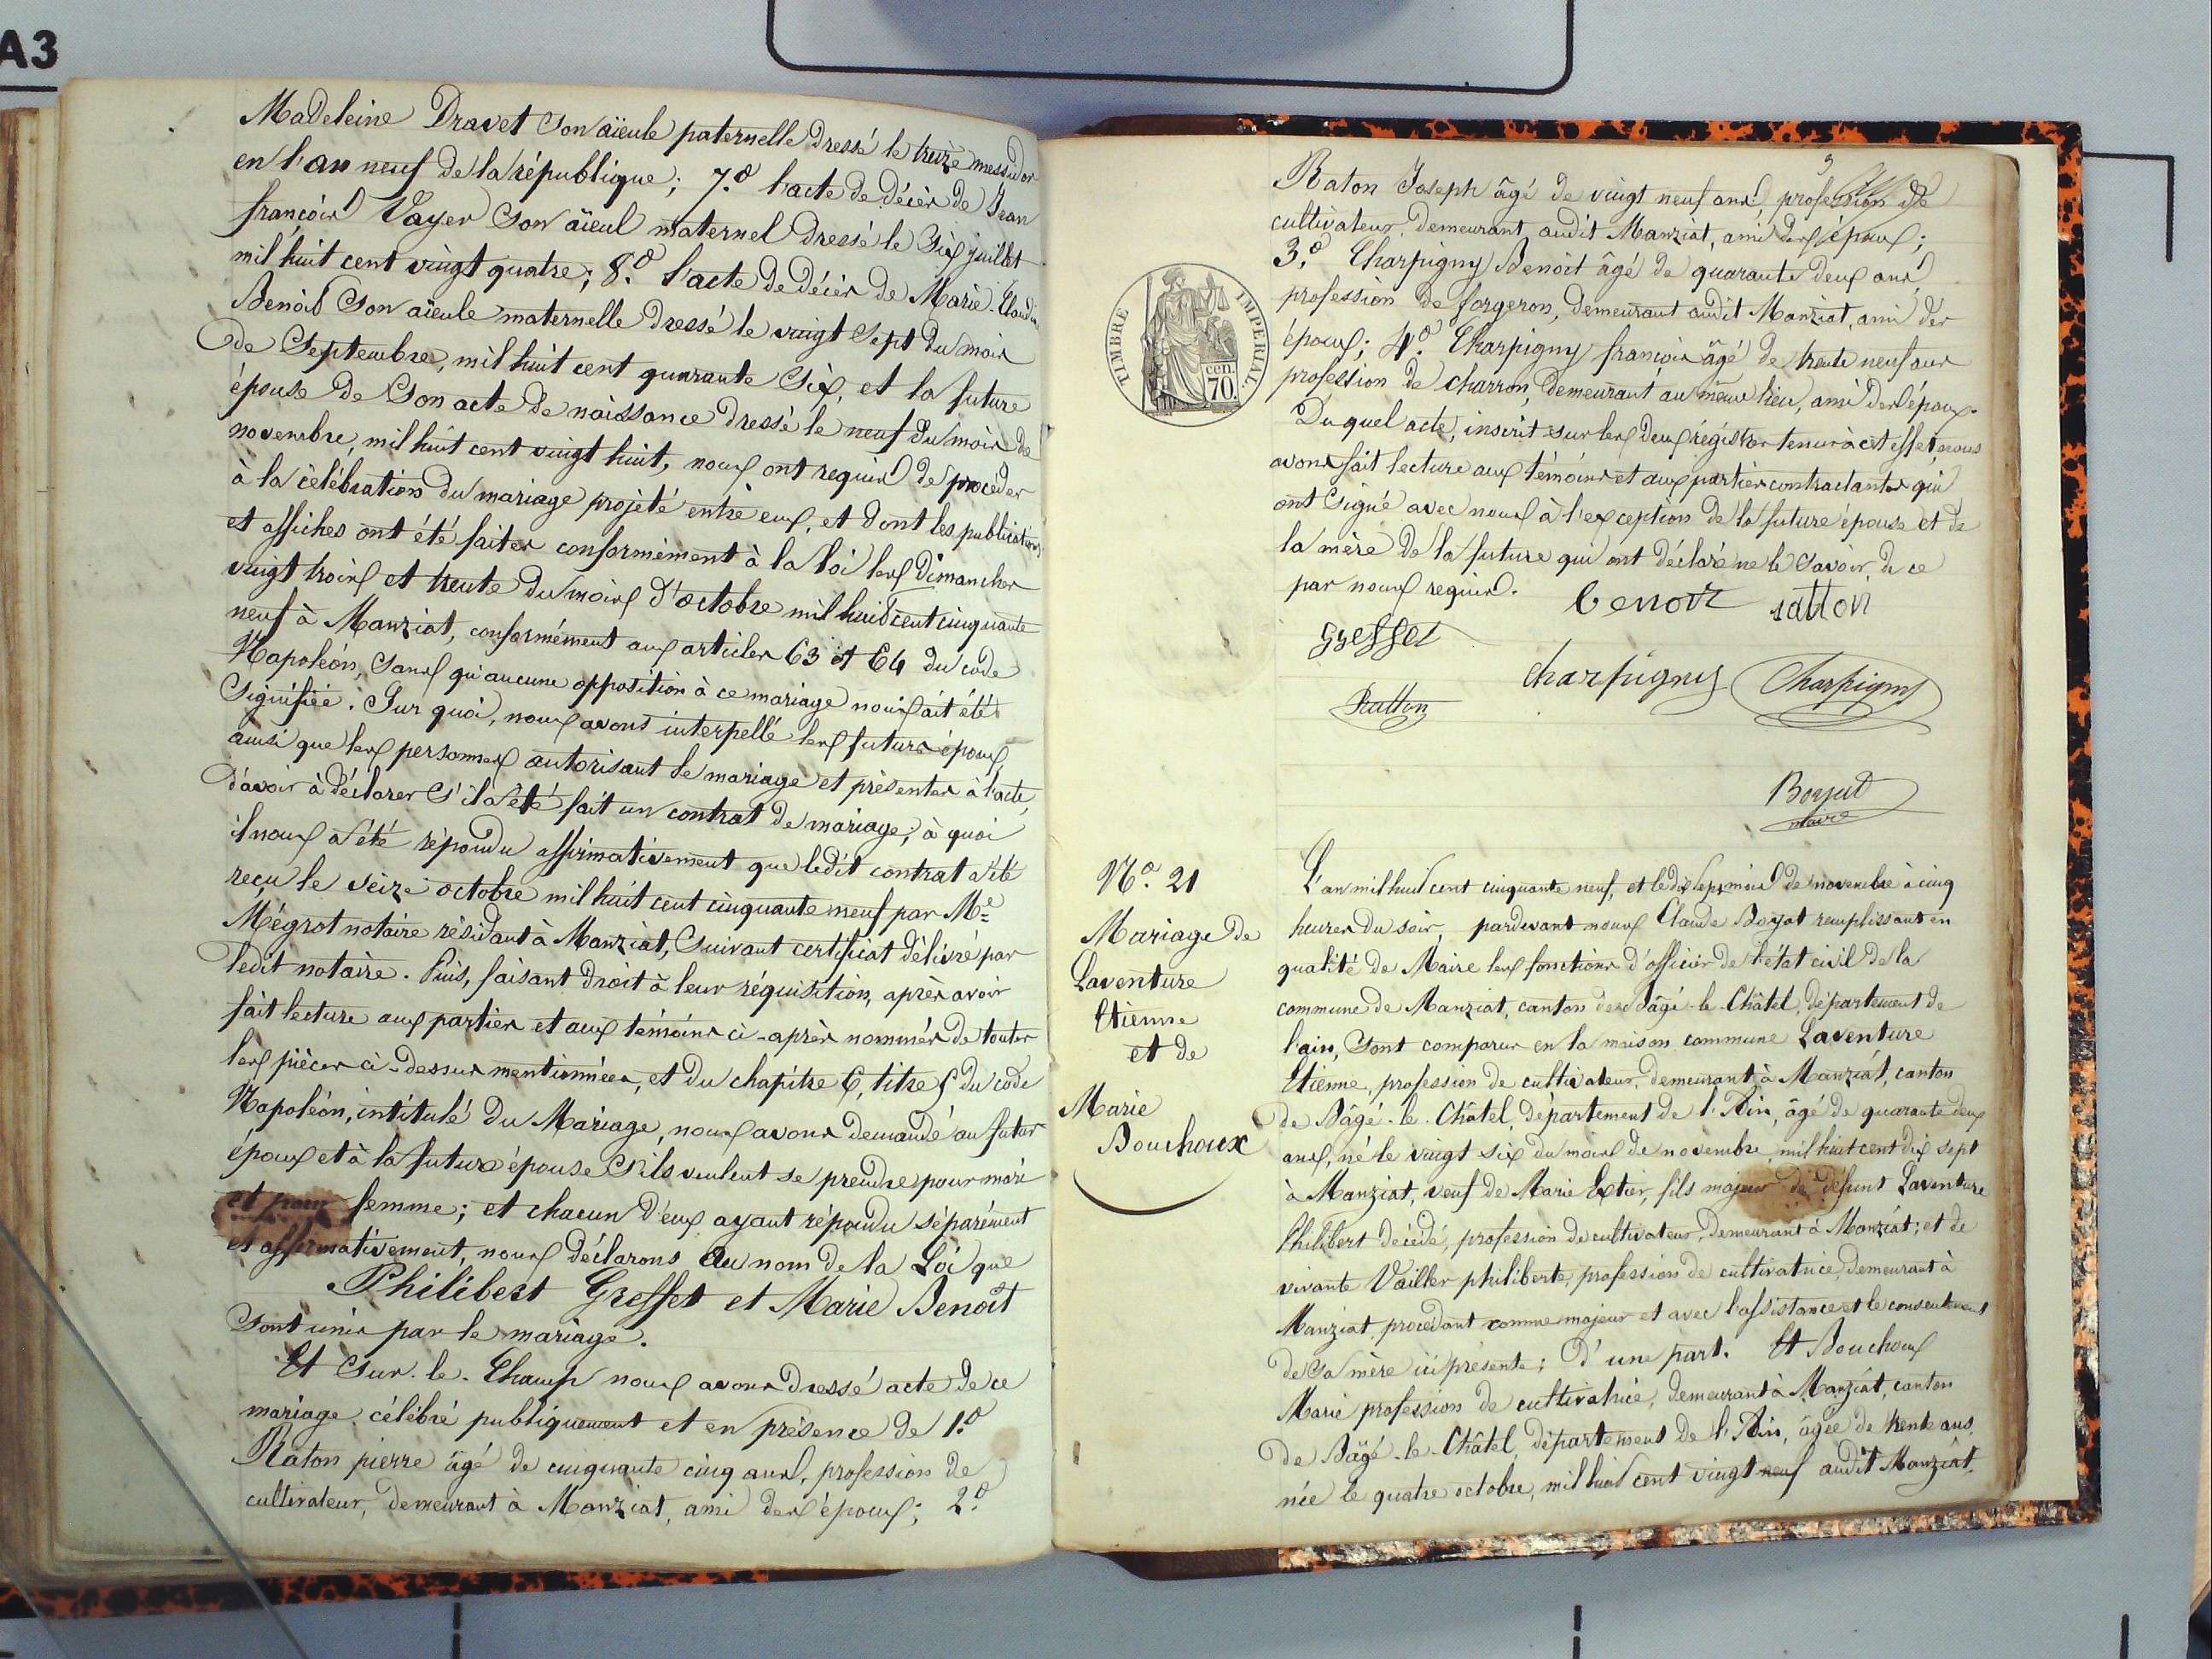 A3
Madeleine Dravet son aïeule paternelle dressé le treize messidor
en l'an neuf de la république; 7.º l'acte de décès de Jean
françois Vayer son aïeul maternel dressé le six juillet
mil huit cent vingt quatre; 8.º l'acte de décès de Marie-Claudine
Benoît son aïeule maternelle dressé le vingt sept du mois
de Septembre, mil huit cent quarante six, et la future
épouse de son acte de naissance dressé le neuf du mois de
novembre, mil huit cent vingt huit, nous ont requis de procéder
à la célébration du mariage projeté entre eux, et dont les publications
et affiches ont été faites conformément à la loi les dimanches
vingt trois et trente du mois d'octobre mil huit cent cinquante
neuf à Manziat, conformément aux articles 63 et 64 du code
Napoléon, sans qu'aucune opposition à ce mariage nous ait été
signifiée. Sur quoi, nous avons interpellé les futurs époux,
ainsi que les personnes autorisant le mariage et présentes à l'acte,
d'avoir à déclarer s'il a été fait un contrat de mariage; à quoi
il nous a été répondu affirmativement que ledit contrat a été
reçu le seize octobre mil huit cent cinquante neuf par Me
Mégrot notaire résidant à Manziat, suivant certificat délivré par
ledit notaire. Puis, faisant droit à leur réquisition, après avoir
fait lecture aux parties et aux témoins ci-après nommés de toutes
les pièces ci-dessus mentionnées, et du chapitre 6, titre 5 du code
Napoléon, intitulé du Mariage, nous avons demandé au futur
époux et à la future épouse s'ils veulent se prendre pour mari
et pour femme; et chacun d'eux ayant répondu séparément
et affirmativement, nous déclarons au nom de la Loi que
Philibert Greffet et Marie Benoît
sont unis par le mariage.
Et sur-le-Champ nous avons dressé acte de ce
mariage célébré publiquement et en présence de 1.º
Raton pierre âgé de cinquante cinq ans, profession de
cultivateur, demeurant à Manziat, ami des époux; 2.º
Raton Joseph âgé de vingt neuf ans, profession de
cultivateur, demeurant audit Manziat, ami des époux;
3.º Charpigny Benoît âgé de quarante deux ans,
profession de forgeron, demeurant audit Manziat, ami des
époux; 4.º Charpigny françois âgé de trente neuf ans
profession de charron, demeurant au même lieu, ami des époux.
Duquel acte, inscrit sur les deux régistres tenus à cet effet, nous
avons fait lecture aux témoins et aux parties contractantes qui
ont signé avec nous à l'exception de la future épouse et de
la mère de la future qui ont déclaré ne le savoir, de ce
par nous requis.
benoit ratton
greffet
charpigny Charpigny
Ratton
Boyat
maire
TIMBRE IMPERIAL
cen.
70.
Nº. 21
Mariage de
Laventure
Etienne
et de
Marie
Bouchoux
L'an mil huit cent cinquante neuf, et le dix sept mois de novembre à cinq
heures du soir, pardevant nous Claude Boyat remplissant en
qualité de Maire les fonctions d'officier de l'état civil de la
commune de Manziat, canton de Bâgé-le-Châtel, département de
l'ain, sont comparus en la maison commune Laventure
Etienne, profession de cultivateur, demeurant à Manziat, canton
de Bâgé-le-Châtel, département de l'Ain, âgé de quarante deux
ans, né le vingt six du mois de novembre, mil huit cent dix sept
à Manziat, veuf de Marie Extier, fils majeur de défunt Laventure
Philibert décédé, profession de cultivateur, demeurant à Manziat; et de
vivante Vailler philiberte, profession de cultivatrice, demeurant à
Manziat procédant comme majeur et avec l'assistance et le consentement
de sa mère ici présente; d'une part. Et Bouchoux
Marie profession de cultivatrice, demeurant à Manziat, canton
de Bâgé-le-Châtel, département de l'Ain, âgée de trente ans,
née le quatre octobre, mil huit cent vingt neuf audit Manziat,